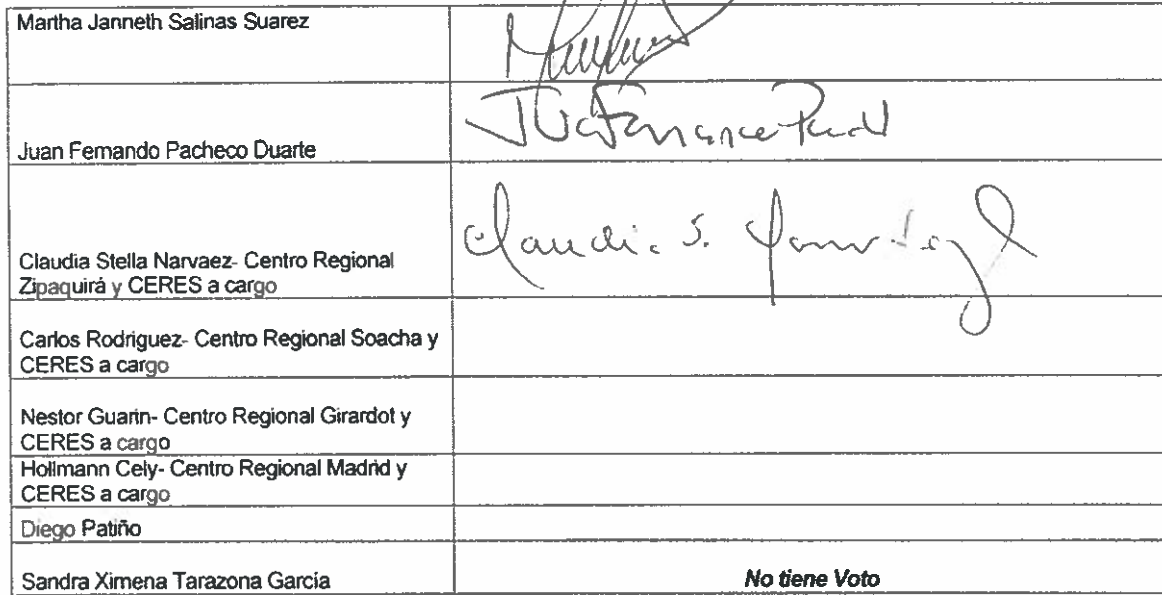 Martha Janneth Salinas Suarez
Juan Fernando Pacheco Duarte
Claudia Stella Narvaez- Centro Regional
Zipaquirá y CERES a cargo
Claudia S.
Carlos Rodriguez- Centro Regional Soacha y
CERES a cargo
Nestor Guarin- Centro Regional Girardot y
CERES a cargo
Hollmann Cely- Centro Regional Madrid y
CERES a cargo
Diego Patiño
Sandra Ximena Tarazona García
No tiene Voto